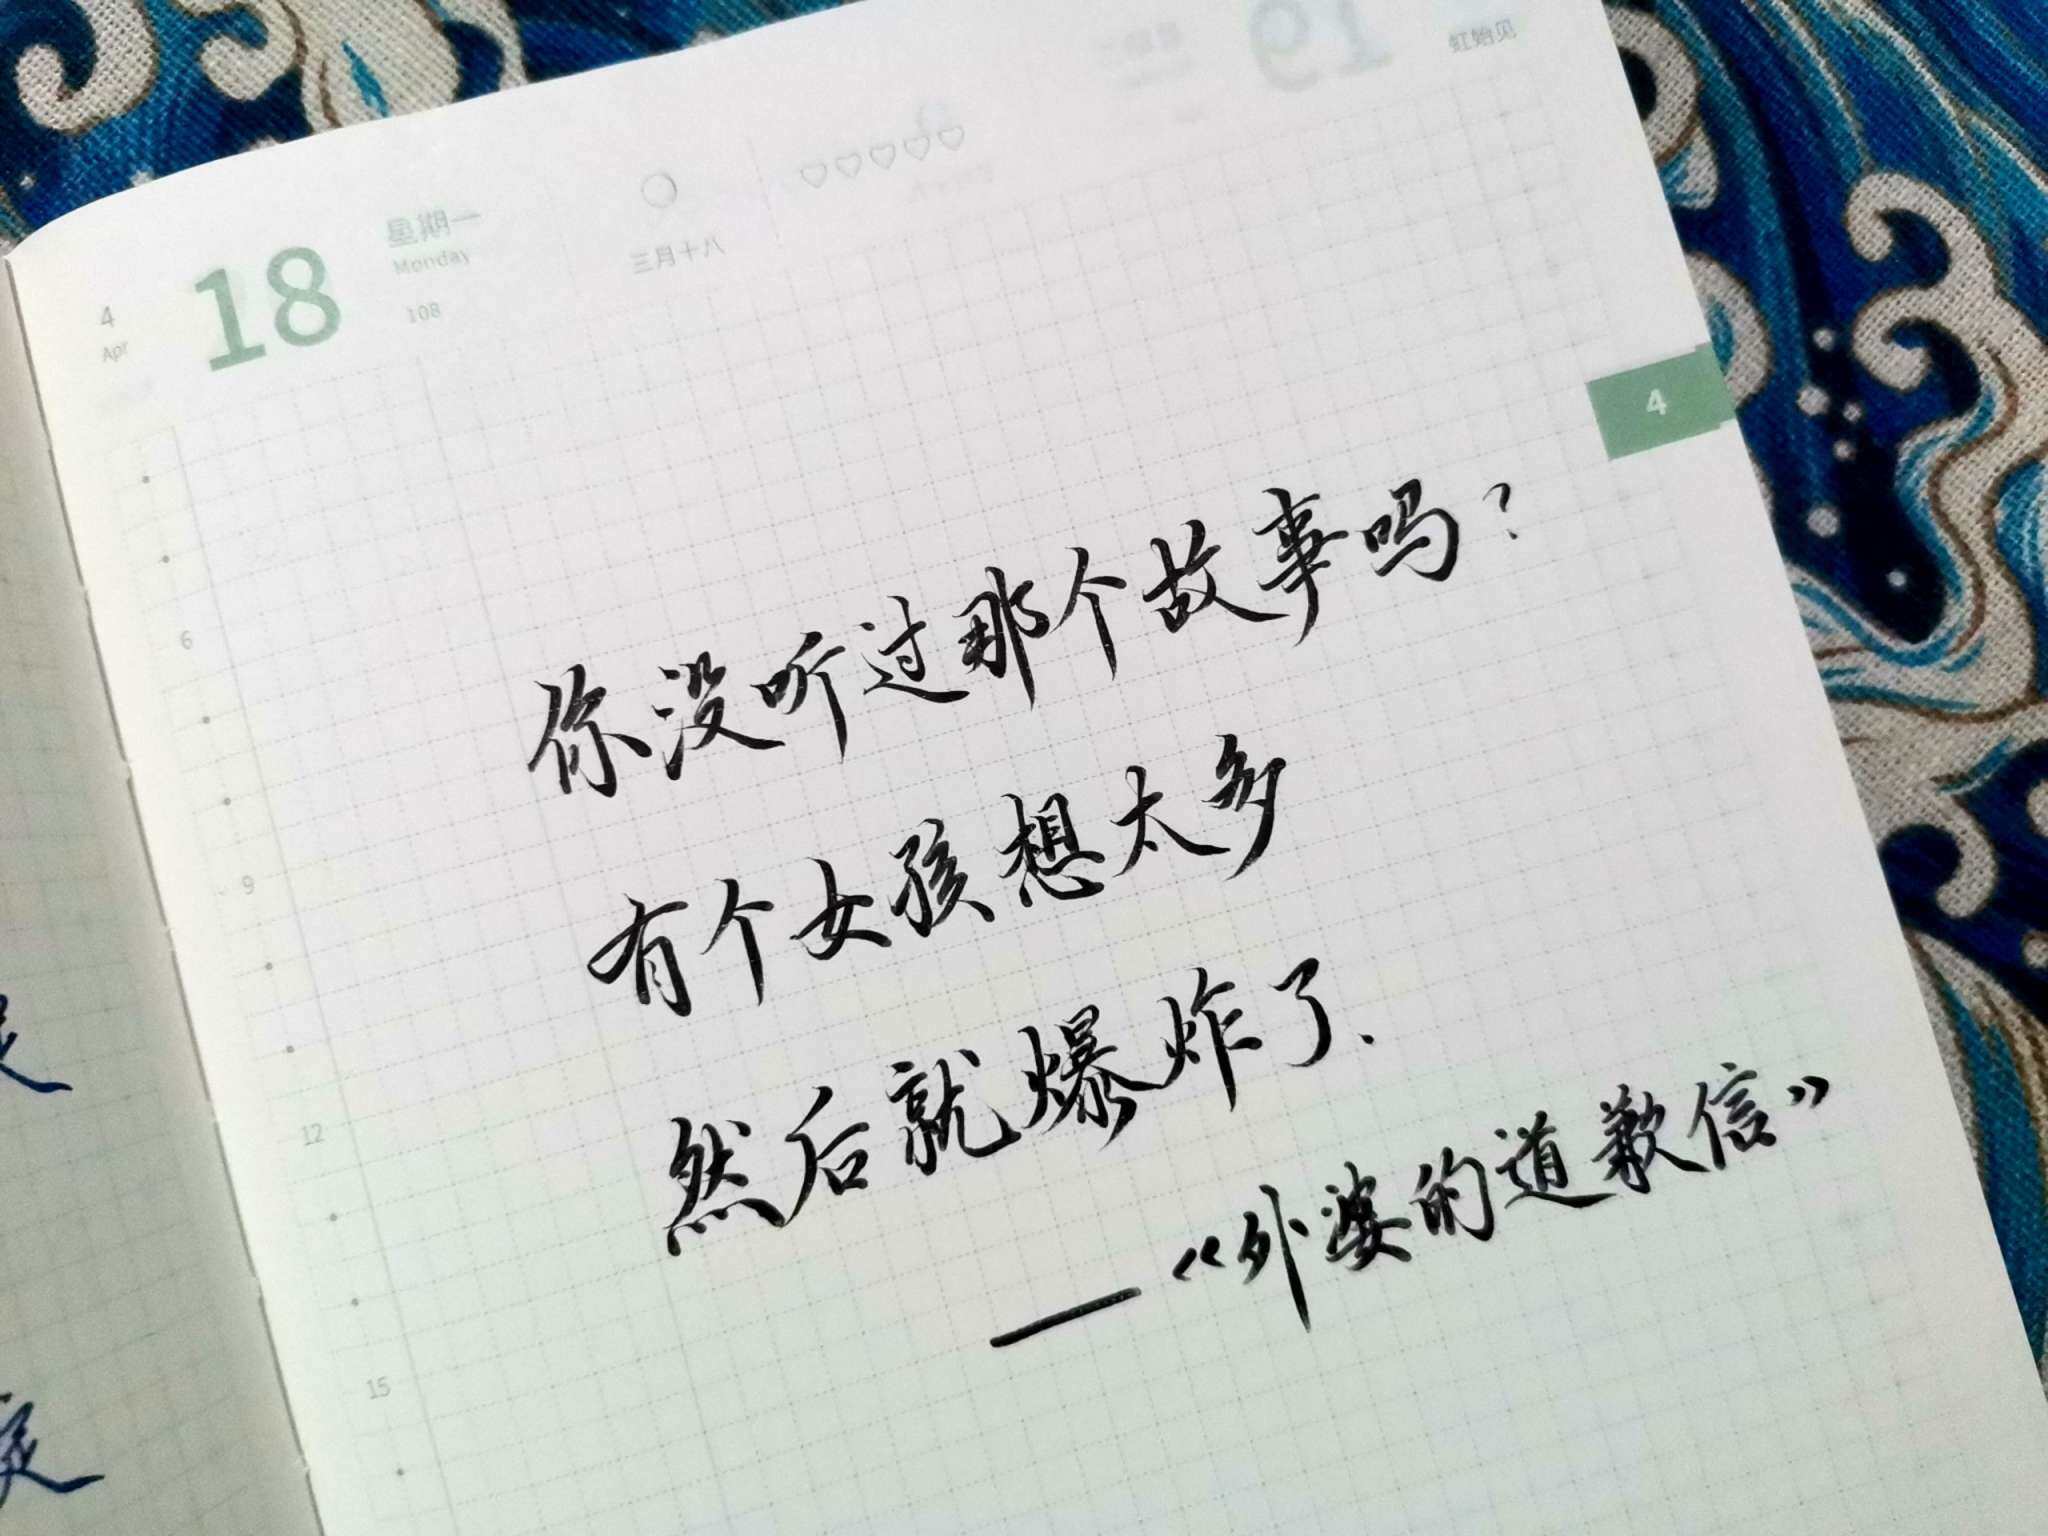 虹始见
19
4
Apr
18
星期一
Monday
108
三月十八
4
你没听过那个故事吗?
有个女孩想太多
然后就爆炸了.
—《外婆的道歉信》
6
9
12
15